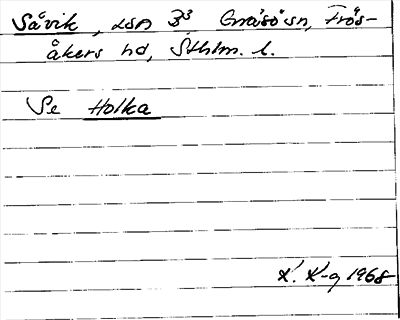 Såvik, län B3 Gräsö sn, Frös-
åkers hd, Sthlm. l.
Se Holka
K. K-g 1968